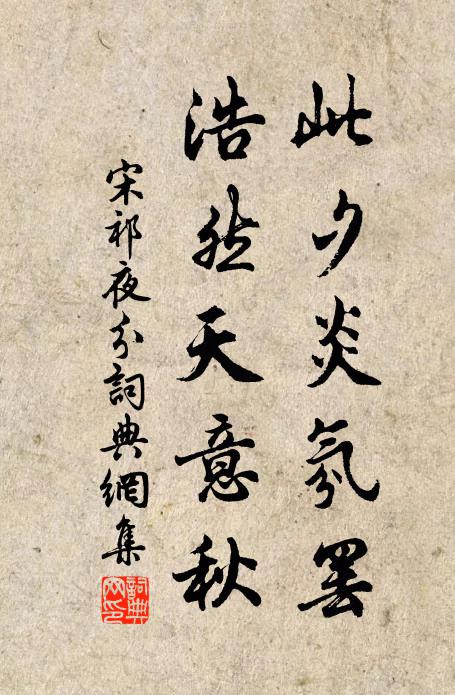 此夕炎氛罢
浩然天意秋
宋祁夜分詞典網集
詞典网印